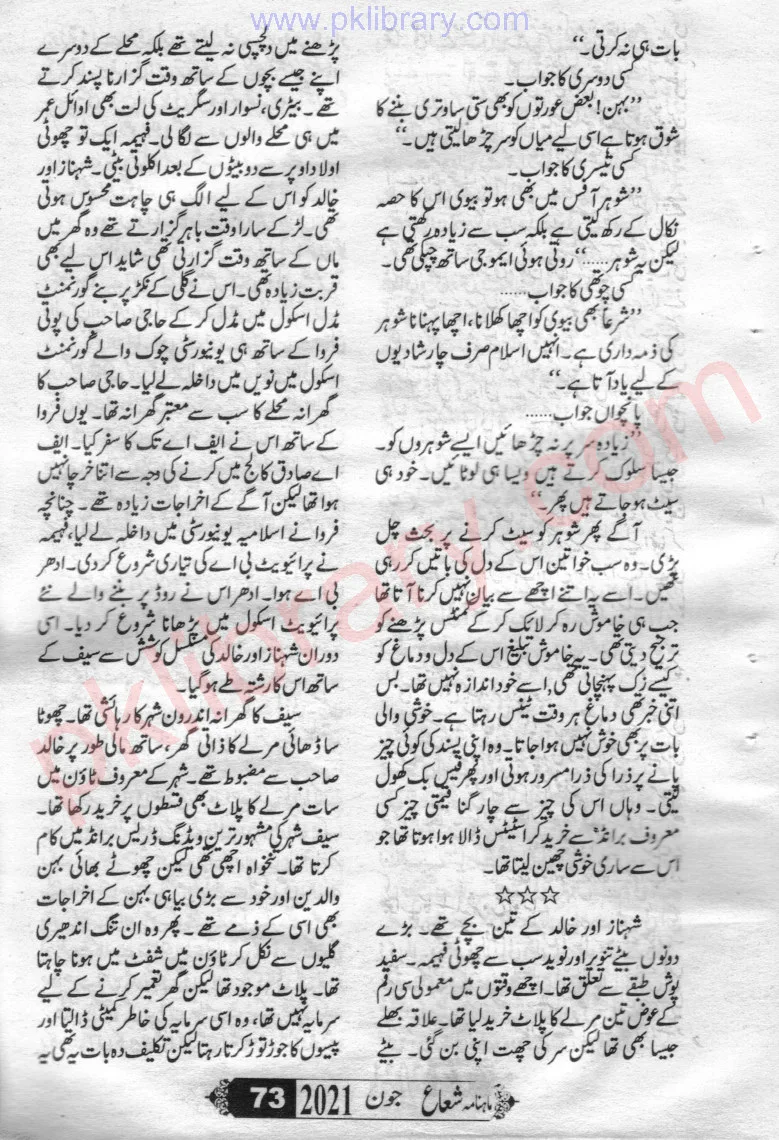 www.pklibrary.com
بات ہی نہ کرتی۔‘‘
کسی دوسری کا جواب۔
’’بہن! بعض عورتوں کو بھی ستی ساوتری بننے کا
شوق ہوتا ہے اسی لیے میاں کو سر چڑھا لیتی ہیں۔‘‘
کسی تیسری کا جواب۔
’’شوہر آفس میں بھی ہو تو بیوی اس کا حصہ
نکال کے رکھ لیتی ہے بلکہ سب سے زیادہ رکھتی ہے
لیکن یہ شوہر......‘‘ روتی ہوئی ایموجی ساتھ چپکی تھی۔
کسی چوتھی کا جواب......
’’شرعاً بھی بیوی کو اچھا کھلانا، اچھا پہنانا شوہر
کی ذمہ داری ہے۔ انہیں اسلام صرف چار شادیوں
کے لیے یاد آتا ہے۔‘‘
پانچواں جواب......
’’زیادہ سر پر نہ چڑھائیں ایسے شوہروں کو۔
جیسا سلوک کرتے ہیں ویسا ہی لوٹائیں۔ خود ہی
سیٹ ہو جاتے ہیں پھر۔‘‘
آگے پھر شوہر کو سیٹ کرنے پر بحث چل
پڑی۔ وہ سب خواتین اس کے دل کی باتیں کر رہی
تھیں۔ اسے یہ اتنے اچھے سے بیان نہیں کرنا آتا تھا
جب ہی خاموش رہ کر لائک کر کے کمنٹس پڑھنے کو
ترجیح دیتی تھی۔ یہ خاموش تبلیغ اس کے دل و دماغ کو
کیسے زک پہنچاتی تھی، اسے خود اندازہ نہیں تھا۔ بس
اتنی خبر تھی دماغ ہر وقت ٹینس رہتا ہے۔ خوشی والی
بات پر بھی خوش نہیں ہوا جاتا۔ وہ اپنی پسند کی کوئی چیز
پانے پر ذرا کی ذرا مسرور ہوتی اور پھر فیس بک کھول
لیتی۔ وہاں اس کی چیز سے چار گنا قیمتی چیز کسی
معروف برانڈ سے خرید کر اسٹیٹس ڈالا ہوا ہوتا تھا جو
اس سے ساری خوشی چھین لیتا تھا۔
☆☆☆
شہناز اور خالد کے تین بچے تھے۔ بڑے
دونوں بیٹے تنویر اور نوید سب سے چھوٹی فہیمہ۔ سفید
پوش طبقے سے تعلق تھا۔ اچھے وقتوں میں معمولی سی رقم
کے عوض تین مرلے کا پلاٹ خرید لیا تھا۔ علاقہ بھلے
جیسا بھی تھا لیکن سر کی چھت اپنی بن گئی۔ بیٹے
پڑھنے میں دلچسپی نہ لیتے تھے بلکہ محلے کے دوسرے
اپنے جیسے بچوں کے ساتھ وقت گزارنا پسند کرتے
تھے۔ بیڑی، نسوار اور سگریٹ کی لت بھی اوائل عمر
میں ہی محلے والوں سے لگا لی۔ فہیمہ ایک تو چھوٹی
اولاد اوپر سے دو بیٹوں کے بعد اکلوتی بیٹی۔ شہناز اور
خالد کو اس کے لیے الگ ہی چاہت محسوس ہوتی
تھی۔ لڑکے سارا وقت باہر گزارتے تھے وہ گھر میں
ماں کے ساتھ وقت گزارتی تھی شاید اس لیے بھی
قربت زیادہ تھی۔ اس نے گلی کے نکڑ پر بنے گورنمنٹ
مڈل اسکول میں مڈل کر کے حاجی صاحب کی پوتی
فروا کے ساتھ ہی یونیورسٹی چوک والے گورنمنٹ
اسکول میں نویں میں داخلہ لے لیا۔ حاجی صاحب کا
گھرانہ محلے کا سب سے معتبر گھرانہ تھا۔ یوں فروا
کے ساتھ اس نے ایف اے تک کا سفر کیا۔ ایف
اے صادق کالج میں کرنے کی وجہ سے اتنا خرچا نہیں
ہوا تھا لیکن آگے کے اخراجات زیادہ تھے۔ چنانچہ
فروا نے اسلامیہ یونیورسٹی میں داخلہ لے لیا، فہیمہ
نے پرائیویٹ بی اے کی تیاری شروع کر دی۔ ادھر
بی اے ہوا۔ ادھر اس نے روڈ پر بننے والے نئے
پرائیویٹ اسکول میں پڑھانا شروع کر دیا۔ اسی
دوران شہناز اور خالد کی مسلسل کوشش سے سیف کے
ساتھ اس کا رشتہ طے ہو گیا۔
سیف کا گھرانہ اندرون شہر کا رہائشی تھا۔ چھوٹا
سا ڈھائی مرلے کا ذاتی گھر، ساتھ مالی طور پر خالد
صاحب سے مضبوط تھے۔ شہر کے معروف ٹاؤن میں
سات مرلے کا پلاٹ بھی قسطوں پر خرید رکھا تھا۔
سیف شہر کی مشہور ترین ویڈنگ ڈریس برانڈ میں کام
کرتا تھا۔ تنخواہ اچھی تھی لیکن چھوٹے بھائی بہن
والدین اور خود سے بڑی بیاہی بہن کے اخراجات
بھی اسی کے ذمے تھے۔ پھر وہ ان تنگ اندھیری
گلیوں سے نکل کر ٹاؤن میں شفٹ میں ہونا چاہتا
تھا۔ پلاٹ موجود تھا لیکن گھر تعمیر کرنے کے لیے
سرمایہ نہیں تھا، وہ اسی سرمایہ کی خاطر کمیٹی ڈالتا اور
پیسوں کا جوڑ توڑ کرتا رہتا لیکن تکلیف دہ بات یہ تھی یہ
ماہنامہ شعاع جون 2021 73
pklibrary.com